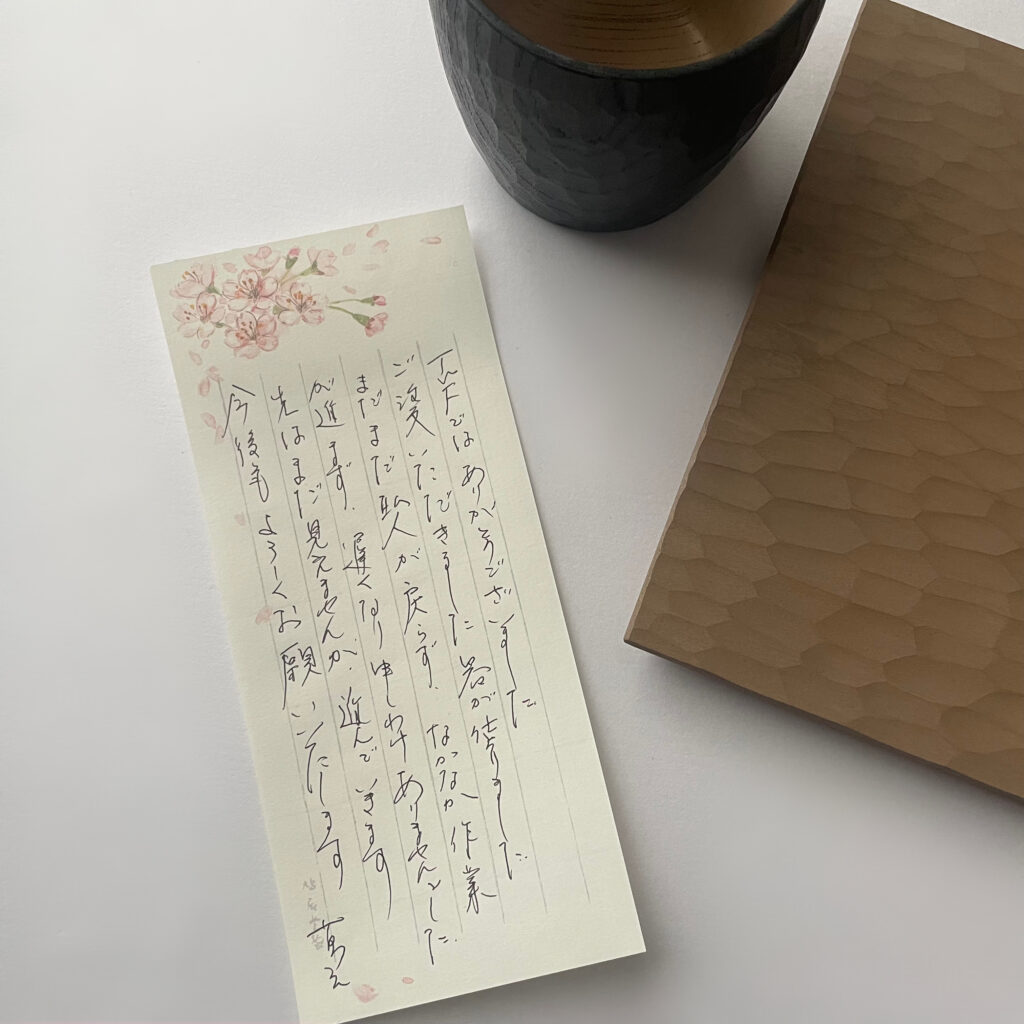 ではありがとうございました
いただきました 器が仕上りました
まだまだ職人が戻らず、なかなか作業
が進まず、遅くなり申しわけありませんでした。
先はまだ見えませんが、進んでいきます
今後もよろしくお願いいたします